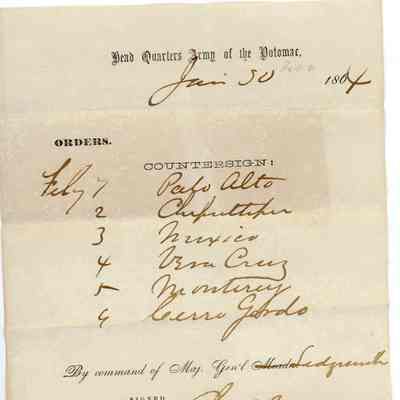 Head Quarters Army of the Potomac,
Jan 30 1864
ORDERS.
COUNTERSIGN:
Feby 1 Palo Alto
2 Chepultepec
3 Mexico
4 Vera Cruz
5 Monterey
6 Cerro Gordo
By command of Maj. Gen'l Meade Sedgewick
SIGNED